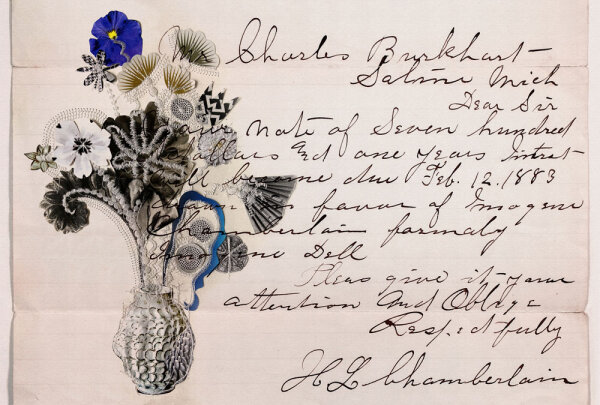 Charles Burkhart
Saline Mich
Dear Sir
your Note of Seven hundred
Dollars and one years Intrat
will become due Feb. 12. 1883
drawn in favor of Imogene
Chamberlain formaly
Imogene Dell
Pleas give it your
attention And Oblige
Respectfully
H L Chamberlain